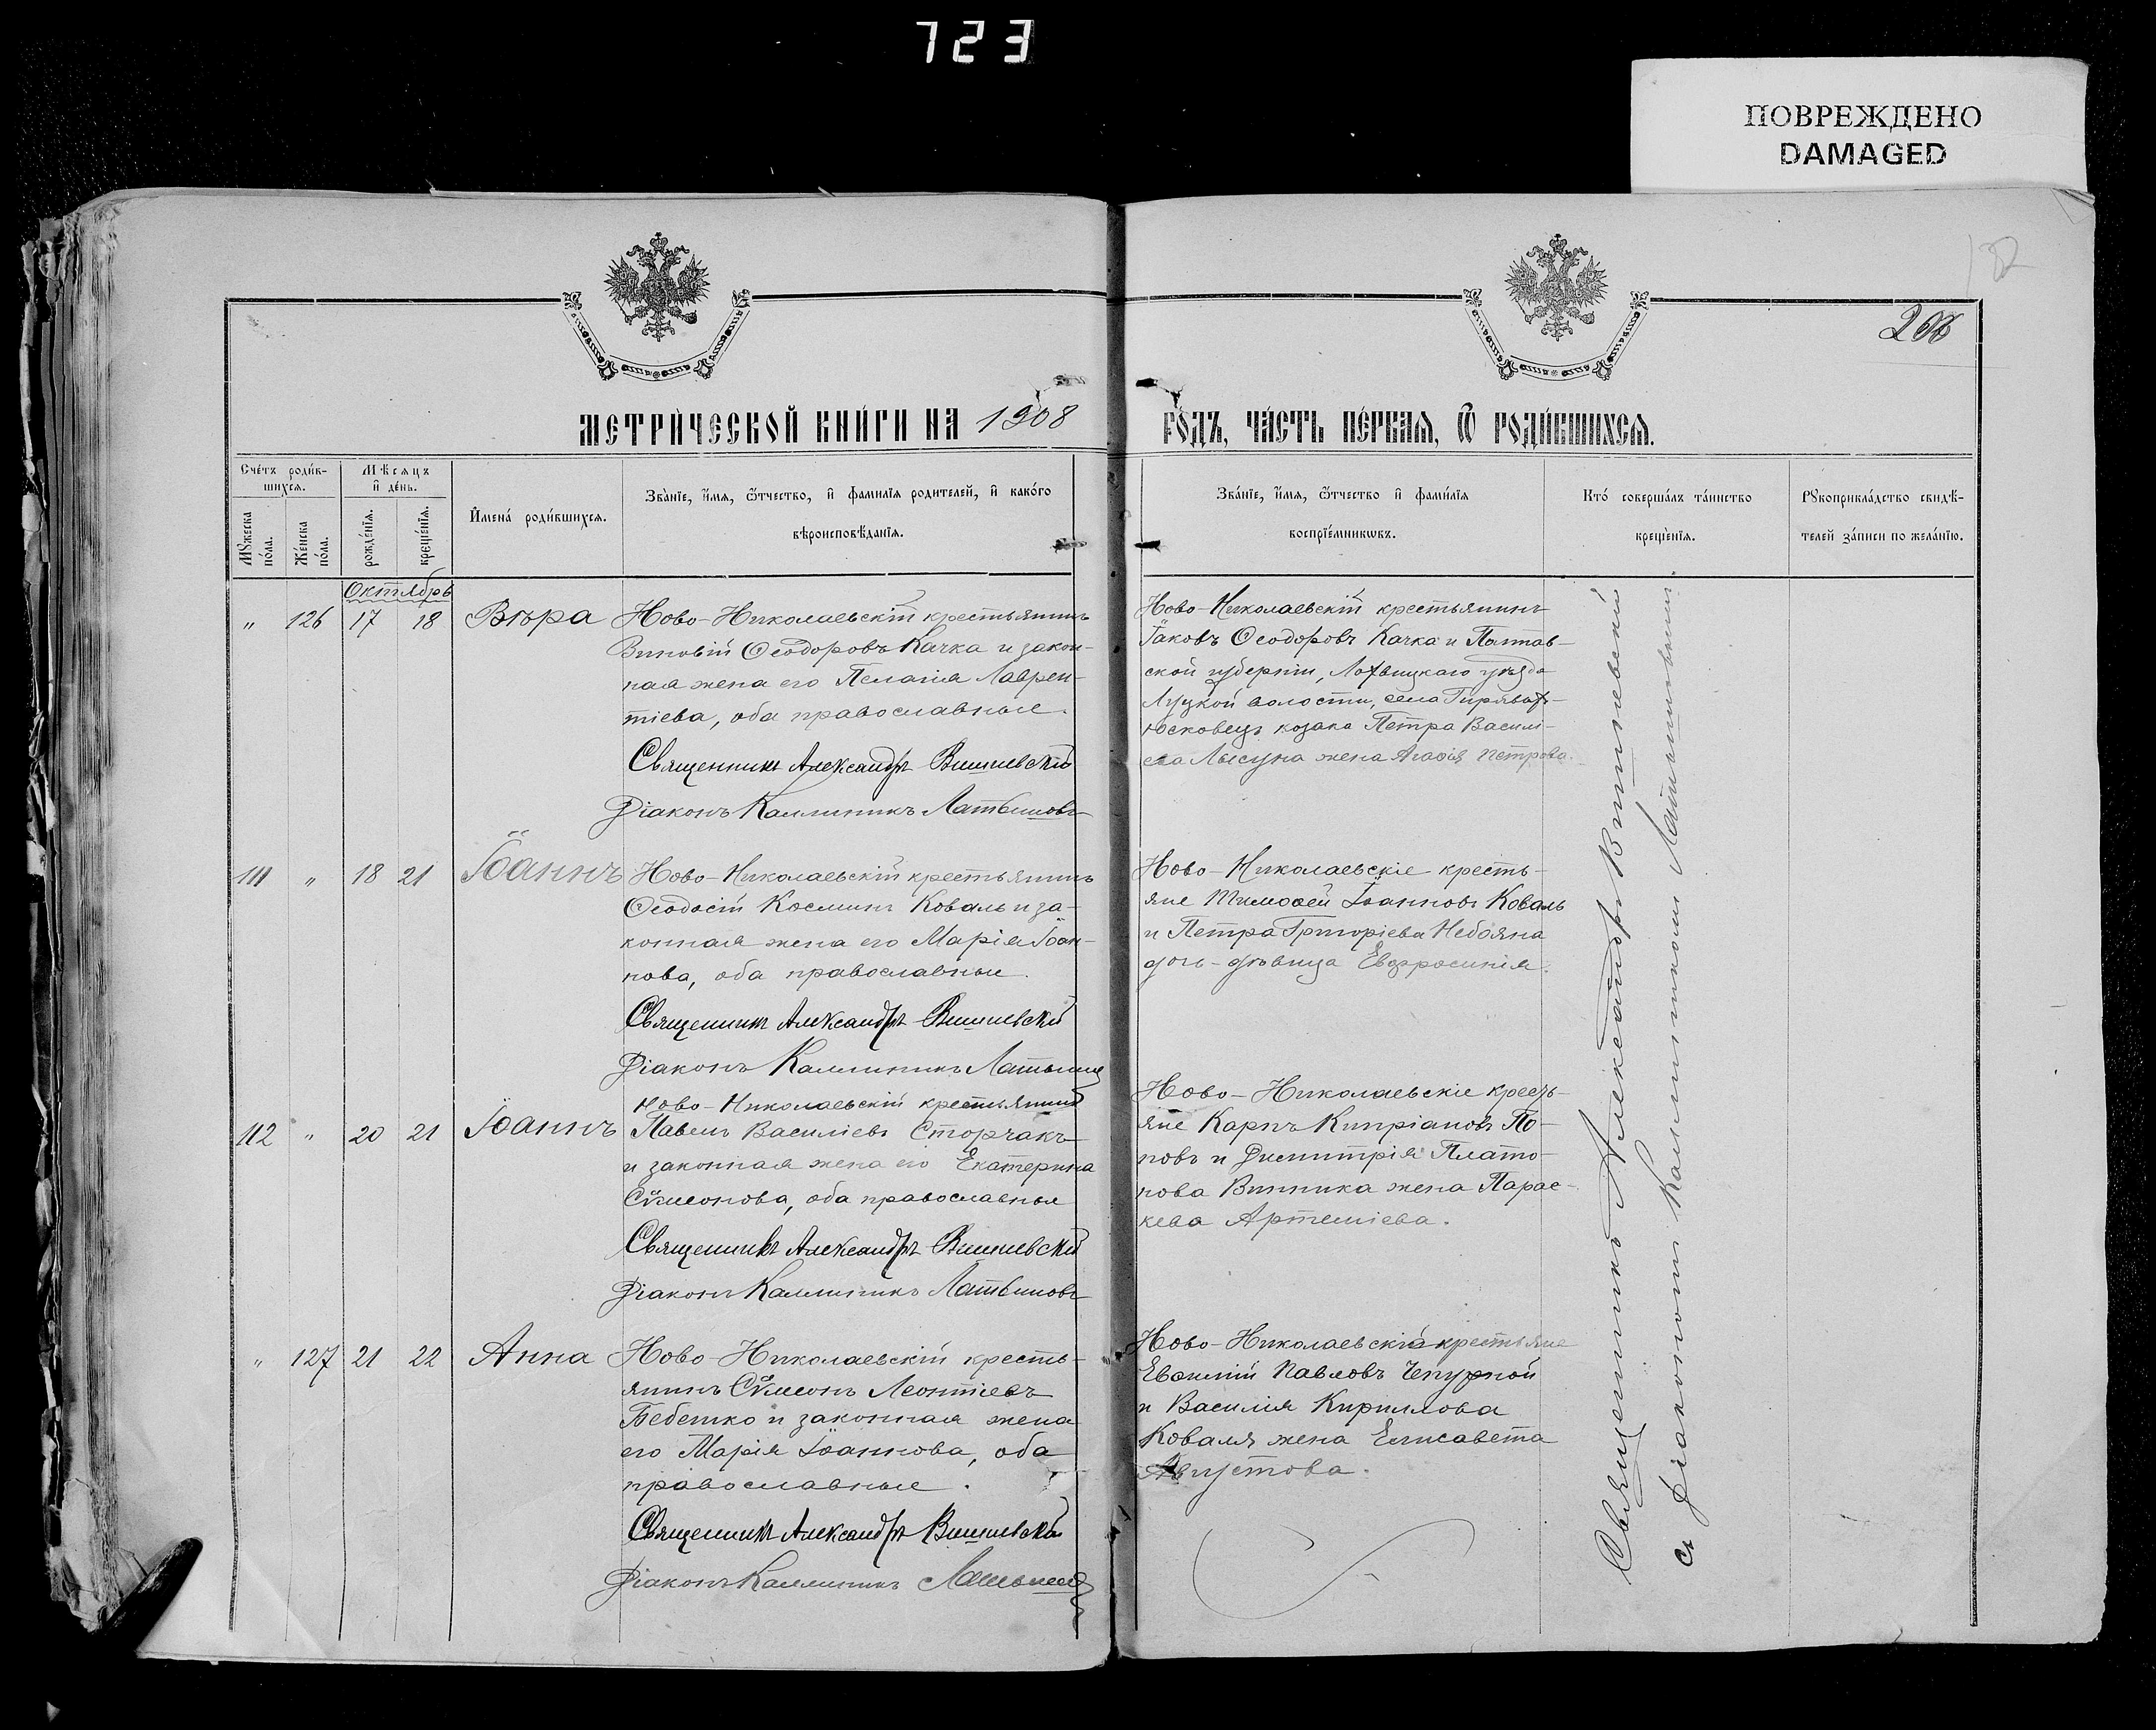 723
ПОВРЕЖДЕНО
DAMAGED
132
206
МЕТРИ́ЧЕСКОЙ КНИ́ГИ НА 1908 ГО́ДЪ, ЧА́СТЬ ПЕ́РВАЯ, Ѿ РОДИ́ВШИХСЯ.
Сче́тъ роди́в-
шихся.
Мѣсяцъ
и де́нь.
Мꙋжеска
по́ла.
Же́нска
по́ла.
рожде́нїя.
креще́нїя.
Имена́ роди́вшихся.
Зва́нїе, и́мя, ѿтчество, и фамилїя родителей, и како́го
вѣроисповѣ́данїя.
Зва́нїе, и́мя, ѿтчество и фами́лїя
воспрїе́мникѡвъ.
Кто́ соверша́лъ та́инство
креще́нїя.
Рꙋкоприкла́дство свидѣ́-
телей за́писи по жела́нїю.
Октябрь
" 126 17 18 Вѣра
Ново-Николаевскій крестьянинъ
Зиновій Ѳеодоровъ Качка и закон-
ная жена его Пелагія Лаврен-
тіева, оба православные.
Священникъ Александръ Вишневскій
Діаконъ Каллиникъ Латышовъ
Ново-Николаевскій крестьянинъ
Іаковъ Ѳеодоровъ Качка и Полтав-
ской губерніи, Лохвицкаго уѣзда
Луцкой волости, села
козака Петра Василі-
ева Лысуна жена Агаѳія Петрова.
111 " 18 21 Іоаннъ
Ново-Николаевскій крестьянинъ
Ѳеодосій Косминъ Коваль и за-
конная жена его Марія Іоан-
нова, оба православные.
Священникъ Александръ Вишневскій
Діаконъ Каллиникъ Латышовъ
Ново-Николаевскіе кресть-
яне Тимоѳей Іоанновъ Коваль
и Петра Григоріева Небояна
дочь-дѣвица Евфросинія.
112 " 20 21 Іоаннъ
Ново-Николаевскій крестьянинъ
Павелъ Василіевъ Сторчакъ
и законная жена его Екатерина
Сѵмеонова, оба православные
Священникъ Александръ Вишневскій
Діаконъ Каллиникъ Латышовъ
Ново-Николаевскіе кресть-
яне Карпъ Кипріановъ По-
повъ и Димитрія Плато-
нова Винника жена Парас-
кева Артеміева.
" 127 21 22 Анна
Ново-Николаевскій кресть-
янинъ Сѵмеонъ Леонтіевъ
Бебешко и законная жена
его Марія Іоаннова, оба
православные.
Священникъ Александръ Вишневскій
Діаконъ Каллиникъ Латышовъ
Ново-Николаевскіе крестьяне
Евѳимій Павловъ Чепурной
и Василія Кириллова
Коваля жена Елисавета
Августова.
Священникъ Александръ Вишневскій
съ діакономъ Каллиникомъ Латышовымъ